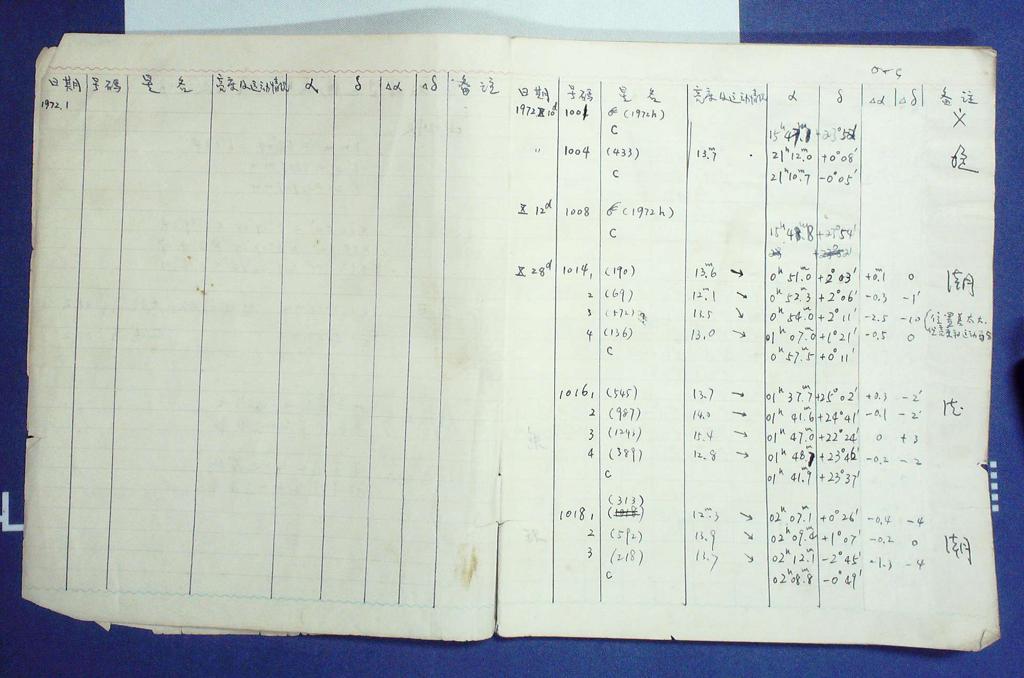 日期 号码 星名 亮度及运动情况 α δ Δα Δδ 备注
1972.1
O-C
日期 号码 星名 亮度及运动情况 α δ Δα Δδ 备注
1972 X 10ᵈ 1001 (1972h)
C 15ʰ 47.1 +23°52'
" 1004 (433) 13.ᵐ7 21ʰ12.ᵐ0 +0°08'
C 21ʰ10.ᵐ7 -0°05'
X 12ᵈ 1008 (1972h)
C 15ʰ48.ᵐ8 +23°54'
X 28ᵈ 1014, (190) 13.ᵐ6 ↘ 0ʰ51.ᵐ0 +2°03' +0.1 0
2 (69) 12.ᵐ1 ↘ 0ʰ52.ᵐ3 +2°06' -0.3 -1'
3 (572) 13.5 ↘ 0ʰ54.ᵐ0 +2°11' -2.5 -10 (位置差太大,
4 (136) 13.0 ↘ 01ʰ07.ᵐ0 +1°21' -0.5 0
C 0ʰ57.ᵐ5 +0°11'
1016, (545) 13.7 ↘ 01ʰ37.ᵐ7 +25°02' +0.3 -2'
2 (987) 14.0 ↘ 01ʰ41.ᵐ6 +24°41' -0.1 -2'
3 (1243) 15.4 ↘ 01ʰ47.ᵐ0 +22°24' 0 +3
4 (389) 12.8 ↘ 01ʰ48.ᵐ7 +23°46' -0.2 -2
C 01ʰ41.ᵐ9 +23°37'
(313)
1018, 12.ᵐ3 ↘ 02ʰ07.ᵐ1 +0°26' -0.4 -4
2 (592) 13.9 ↘ 02ʰ09.ᵐ4 +1°07' -0.2 0
3 (218) 13.7 ↘ 02ʰ12.ᵐ1 -2°45' -1.3 -4
C 02ʰ08.ᵐ8 -0°49'